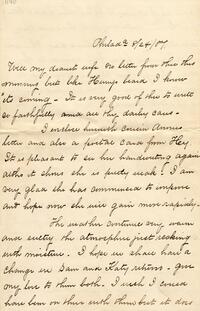 Philada 8/24/07.
Well my dearest wife no letter from thee this
morning but like Henry's beard I know
"its coming" - It is very good of thee to write
so faithfully amid all thy daily cares.
I enclose herewith cousin
letter and also a postal card from Hez
It is pleasant to see her handwriting again
altho it shows she is pretty weak. I am
very glad she has commenced to improve
and hope now she will gain more rapidly.
The weather continues very warm
and sultry the atmosphere just reeking
with moisture. I hope we shall have a
change ere Sam and Katy return. give
my love to them both. I wish I could
have been on there with them but it does